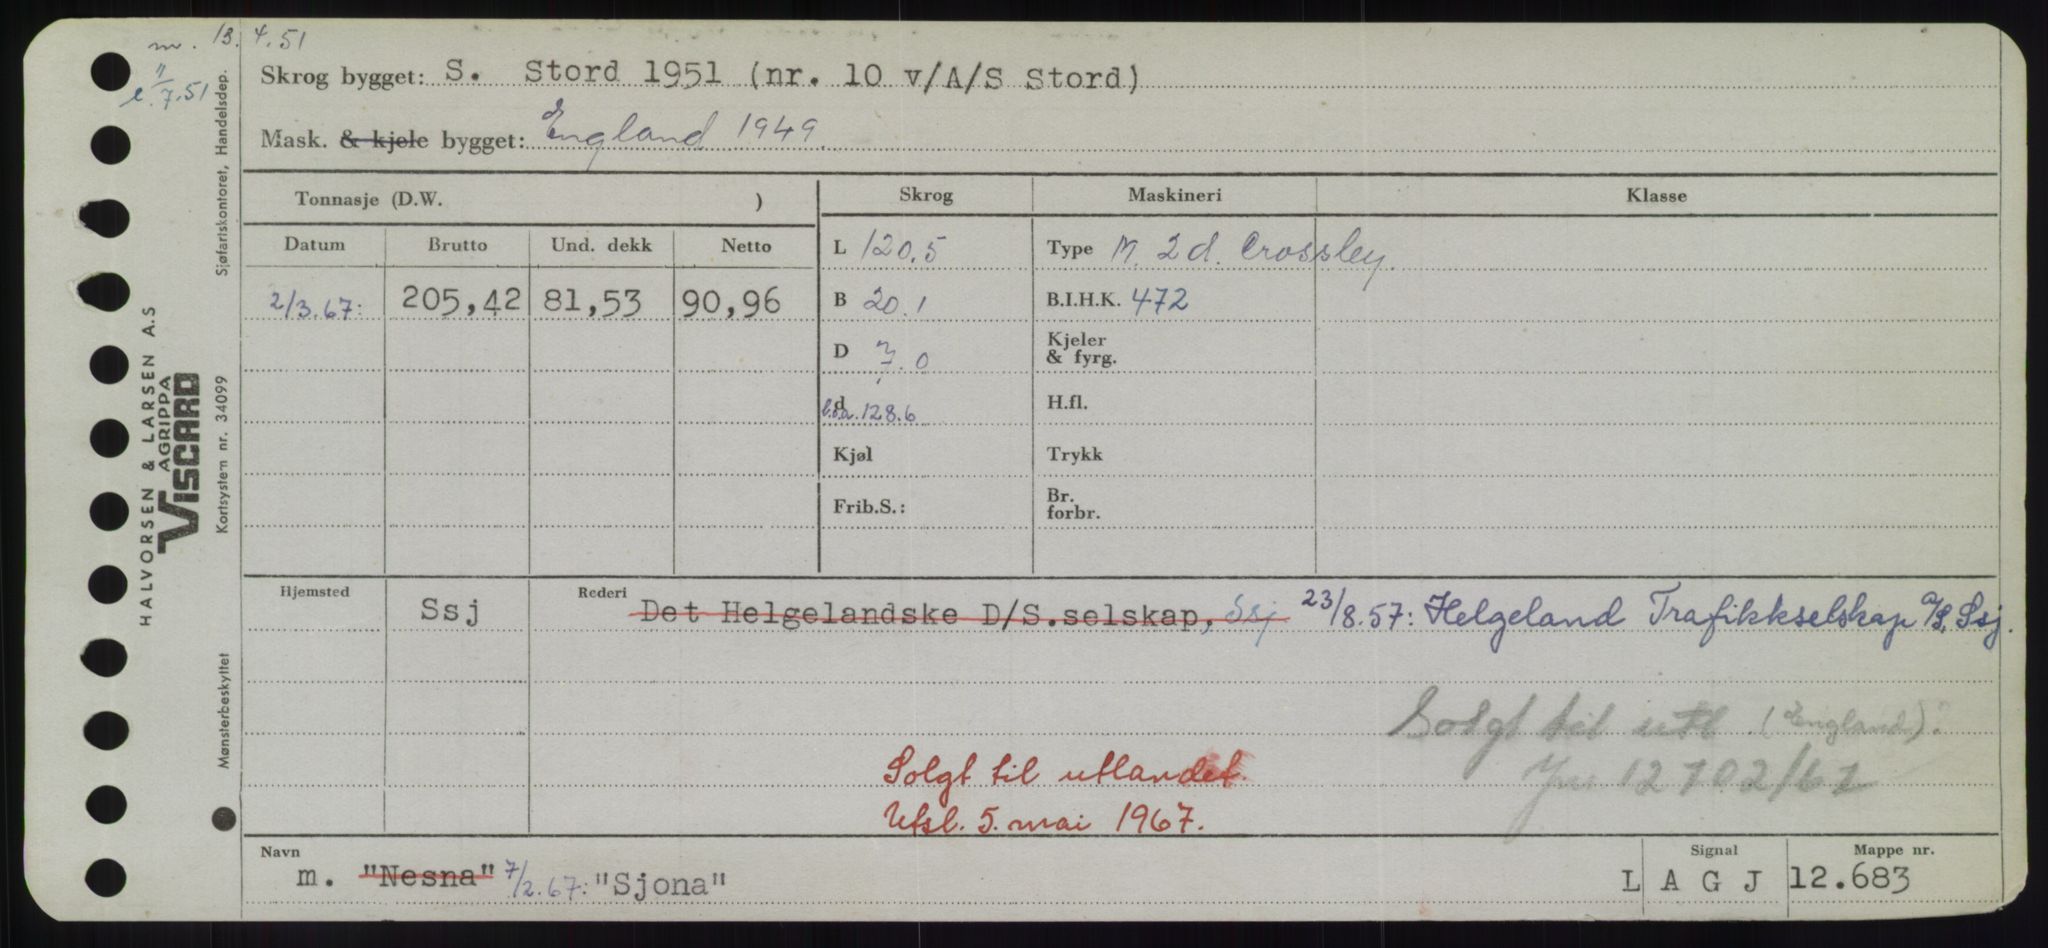 m. 13. 4. 51
e. 11/7.51
Skrog bygget: S. Stord 1951 (nr. 10 v/A/S Stord)
Mask. & kjele bygget: England 1949.
Tonnasje (D.W. )
Skrog Maskineri Klasse
Datum Brutto Und. dekk Netto
L 120,5 Type M. 2 d. Crossley.
2/3.67: 205,42 81,53 90,96
B 20.1 B.I.H.K. 472
D 7.0 Kjeler & fyrg.
d l.o.a. 128.6 H.fl.
Kjøl Trykk
Frib.S.: Br. forbr.
Hjemsted Ssj Rederi Det Helgelandske D/S.selskap, Ssj 23/8.57: Helgeland Trafikkselskap A/S, Ssj.
Solgt til utl. (England).
Solgt til utlandet.
Jnr 12702/67
Utsl. 5. mai 1967.
Navn Signal Mappe nr.
m. "Nesna" 7/2.67: "Sjona" L A G J 12.683
HALVORSEN & LARSEN A.S
AGRIPPA
VISCARD
Sjøfartskontoret, Handelsdep.
Kortsystem nr. 34099
Mønsterbeskyttet